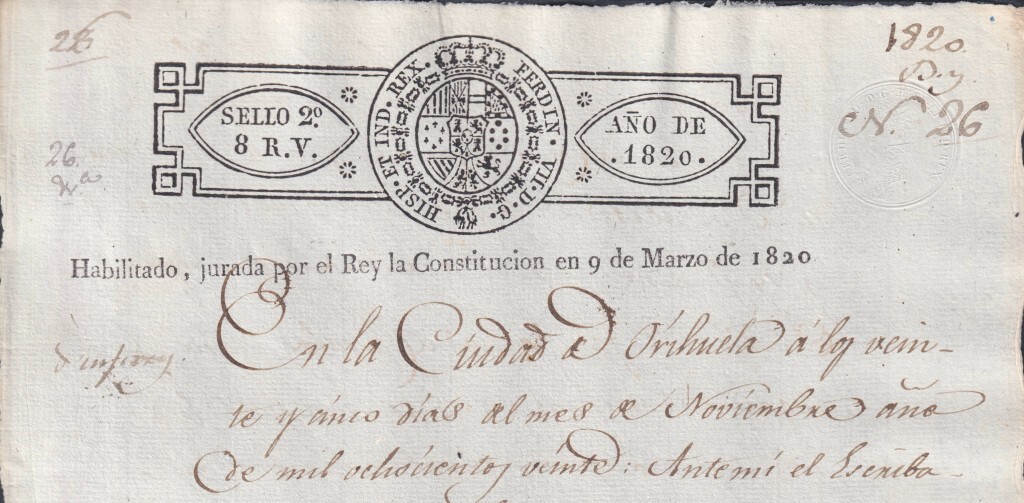 1820
N. 26
26.
SELLO 2º
8 R.V.
HISP. ET IND. REX. FERDIN. VII. D. G.
AÑO DE
.1820.
Habilitado, jurada por el Rey la Constitucion en 9 de Marzo de 1820
En la Ciudad de Orihuela á los vein-
te y cinco dias del mes de Noviembre año
de mil ochocientos veinte: Antemi el Escriba-